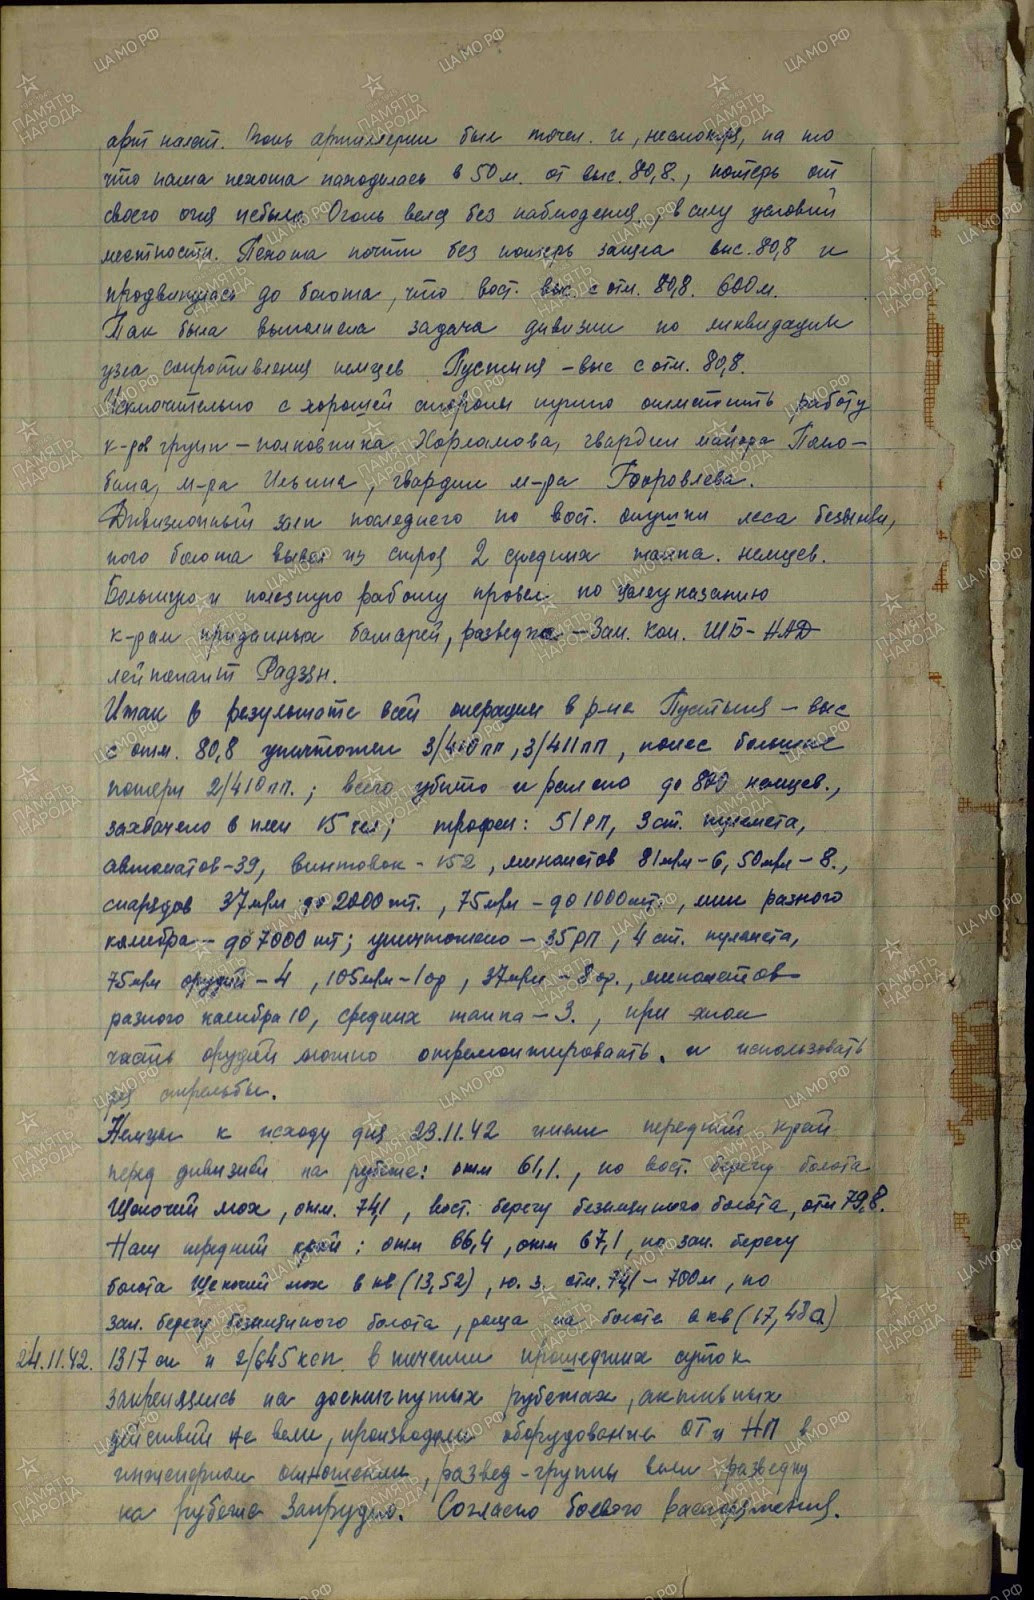 арт налёт. Огонь артиллерии был точен и, несмотря, на то
что наша пехота находилась в 50 м. от выс. 80,8., потерь от
своего огня небыло. Огонь велся без наблюдения, в силу условий
местности. Пехота почти без потерь заняла выс. 80,8 и
продвинулась до болота, что вост. выс. с отм. 80,8. 600 м.
Так была выполнена задача дивизии по ликвидации
узла сопротивления немцев Пустыня – выс с отм. 80,8.
Исключительно с хорошей стороны нужно отметить работу
к-ров групп – полковника Харламова, гвардии майора
м-ра Ильина, гвардии м-ра
Дивизионный залп последнего по вост. опушки леса безымян,
ного болота вывел из строя 2 средних танка немцев.
Большую и полезную работу провел по целеуказанию
к-рам приданных батарей, – Зам. ком. НАД
лейтенант Радзян.
Итак в результате всей операции в р-не Пустыня – выс
с отм. 80,8 уничтожен 3/410 пп, 3/411 пп, понес большие
потери 2/410 пп.; всего убито и ранено до немцев.,
захвачено в плен 15 чел; трофеи: 51 РП, 3 ст. пулемета,
автоматов – 39, винтовок – 152, минометов 81 мм – 6, 50 мм – 8.,
снарядов 37 мм до 2000 шт., 75 мм – до 1000 шт., мин разного
калибра – до 7000 шт; уничтожено – 35 РП, 4 ст. пулемета,
75 мм орудий – 4, 105 мм – 1 ор, 37 мм – 8 ор., минометов
разного калибра 10, средних танка – 3., при этом
часть орудий можно отремонтировать. и использовать
для стрельбы.
Немцы к исходу дня 23.11.42 имели передний край
перед дивизией на рубеже: отм 61,1., по вост. берегу болота
мох, отм. 74,1, вост. берегу безымянного болота, отм 79,8.
Наш передний край: отм 66,4, отм 67,1, по зап. берегу
болота мох в кв (13,52), ю.з. отм. 74,1 – 700 м, по
зап. берегу безымянного болота, роща на болоте в кв (17,48а)
24.11.42. 1317 сп и 2/645 ксп в течении прошедших суток
закрепляясь на достигнутых рубежах, активных
действий не вели, производили оборудование ОТ и НП в
инженерном отношении, развед-группы вели разведку
на рубеже Запрудно. Согласно боевого распоряжения.
ПАМЯТЬ НАРОДА
ЦАМО РФ